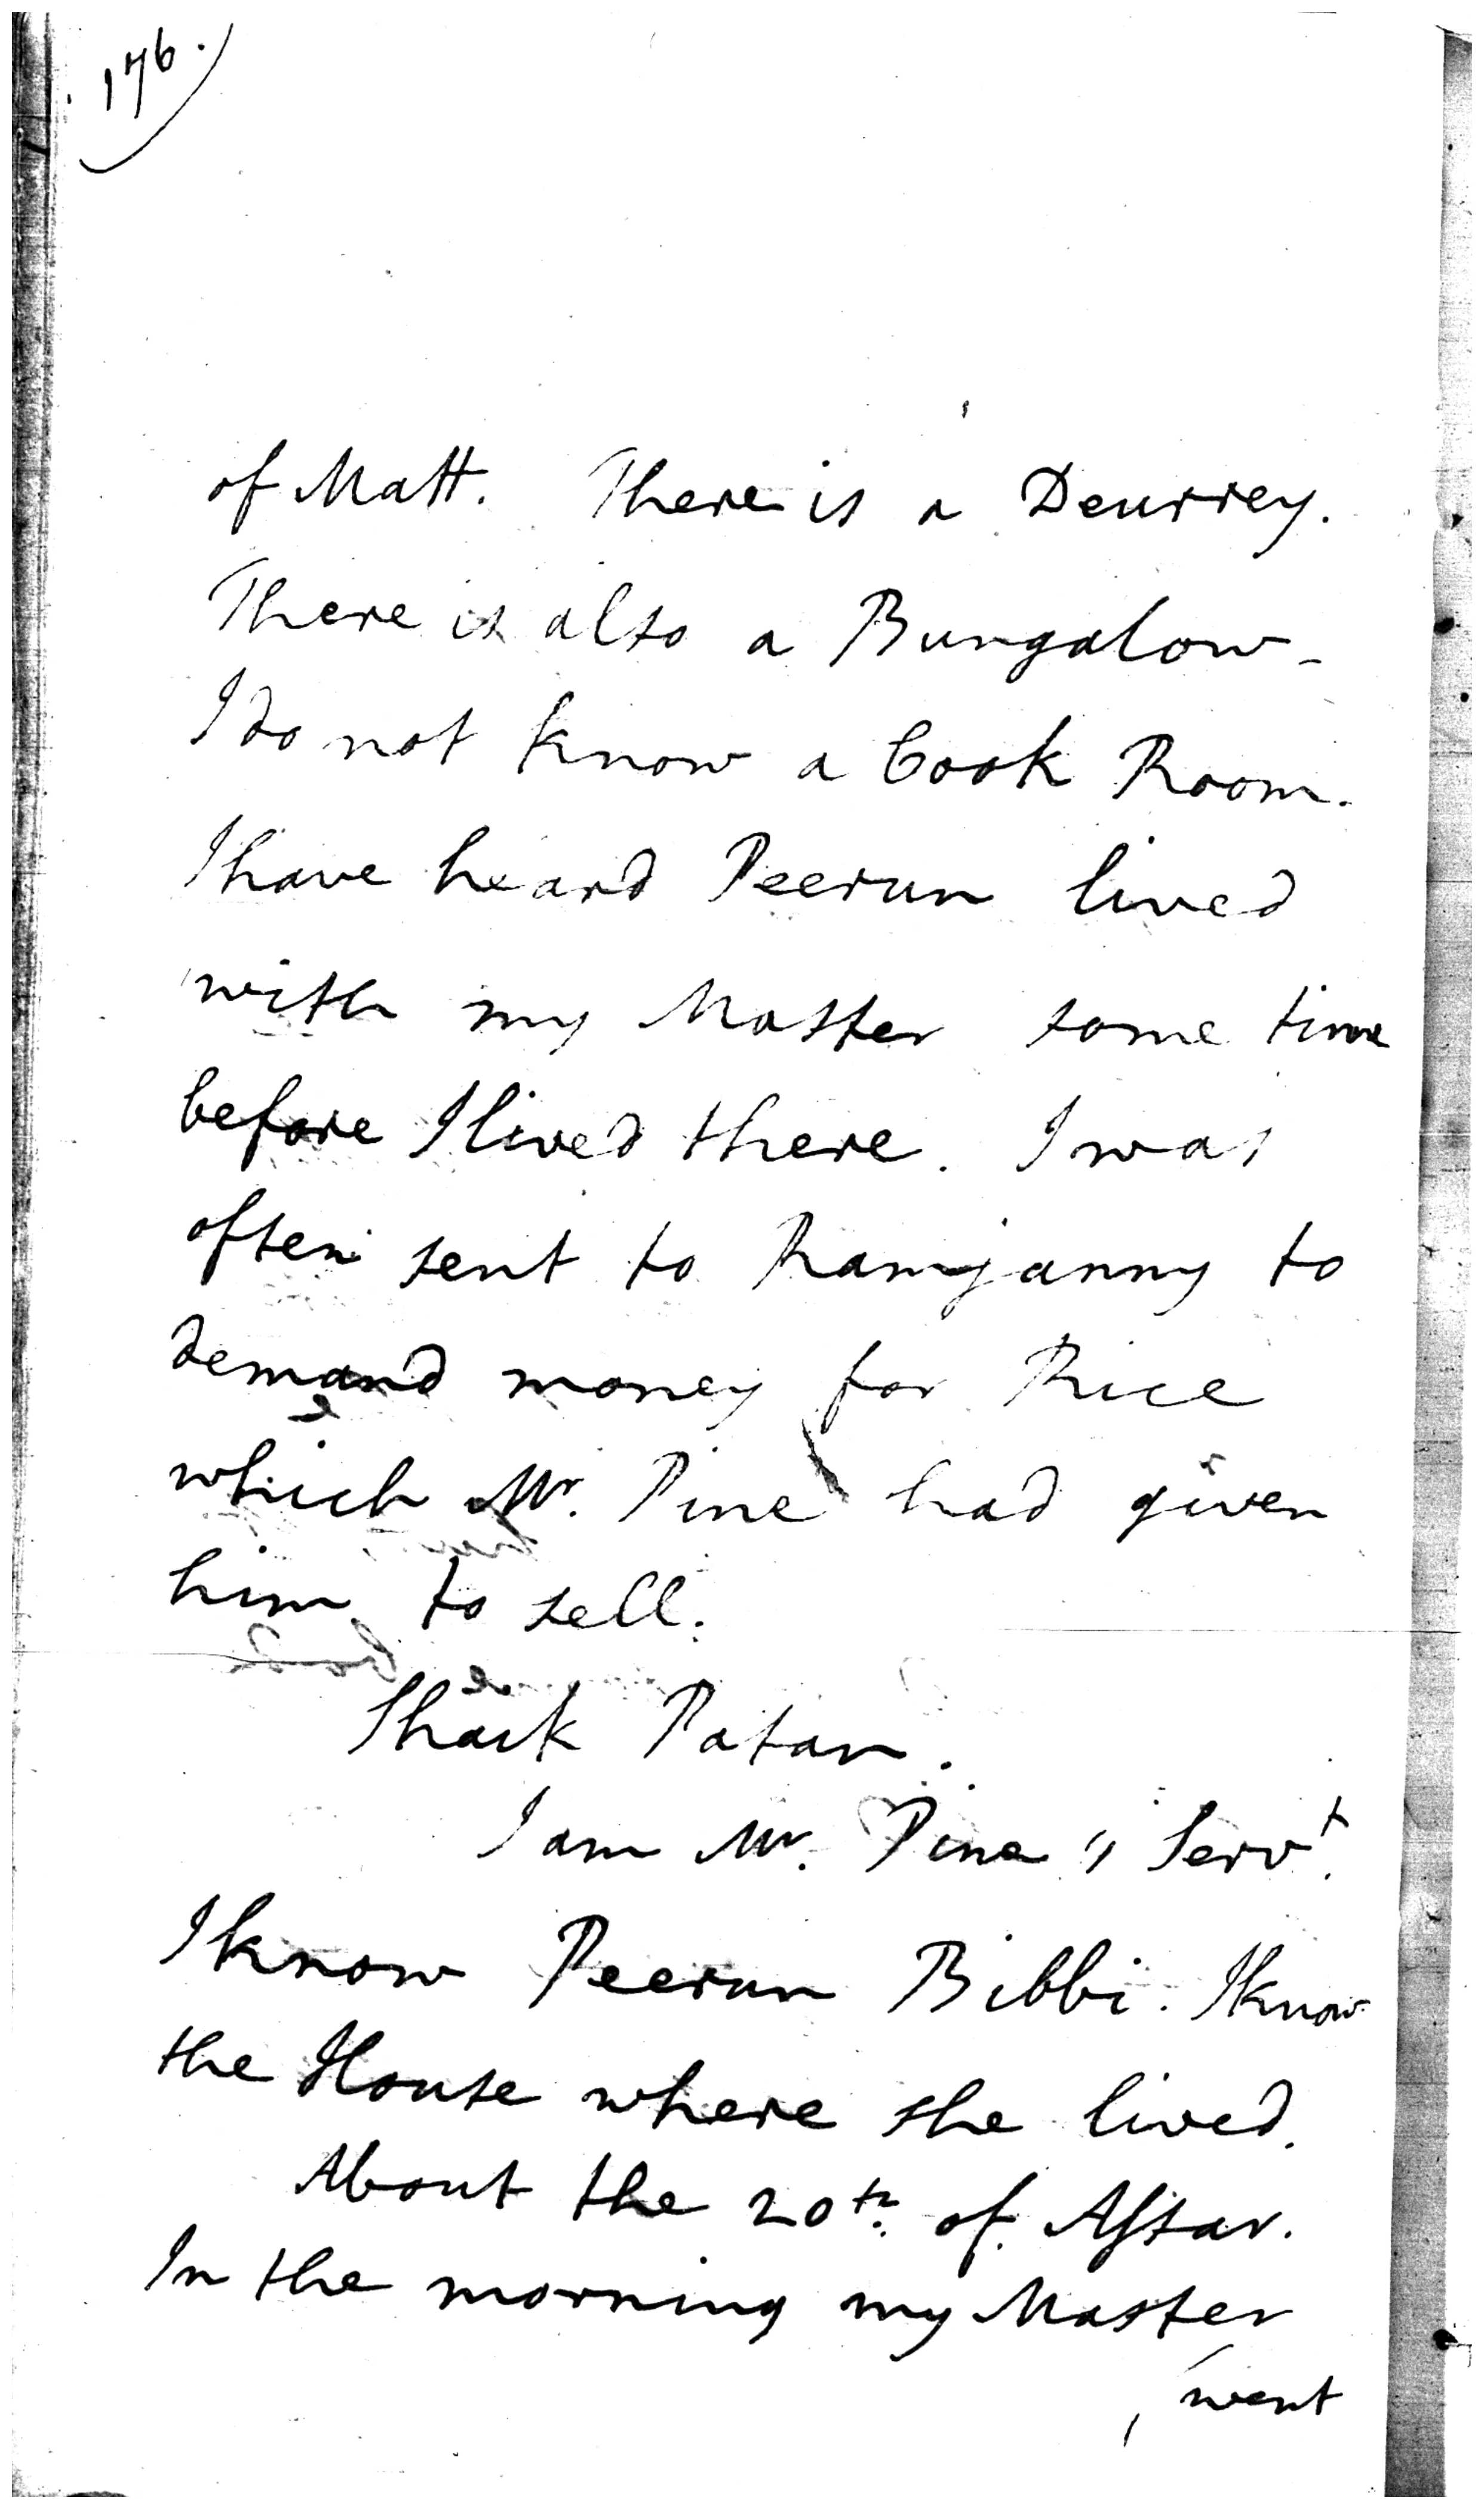 176.
of Matt. There is a Deurrey.
There is also a Bungalow -
I do not know a Cook Room.
I have heard Peerun lived
with my Master some time
before I lived there. I was
often sent to Ramjanny to
demand money for Rice
which Mr. Pine had given
him to sell.
Shaik Patan.
I am Mr. Pine's Servt.
I know Peerun Bibbi. I know
the House where she lived.
About the 20th. of Assar.
In the morning my Master
went